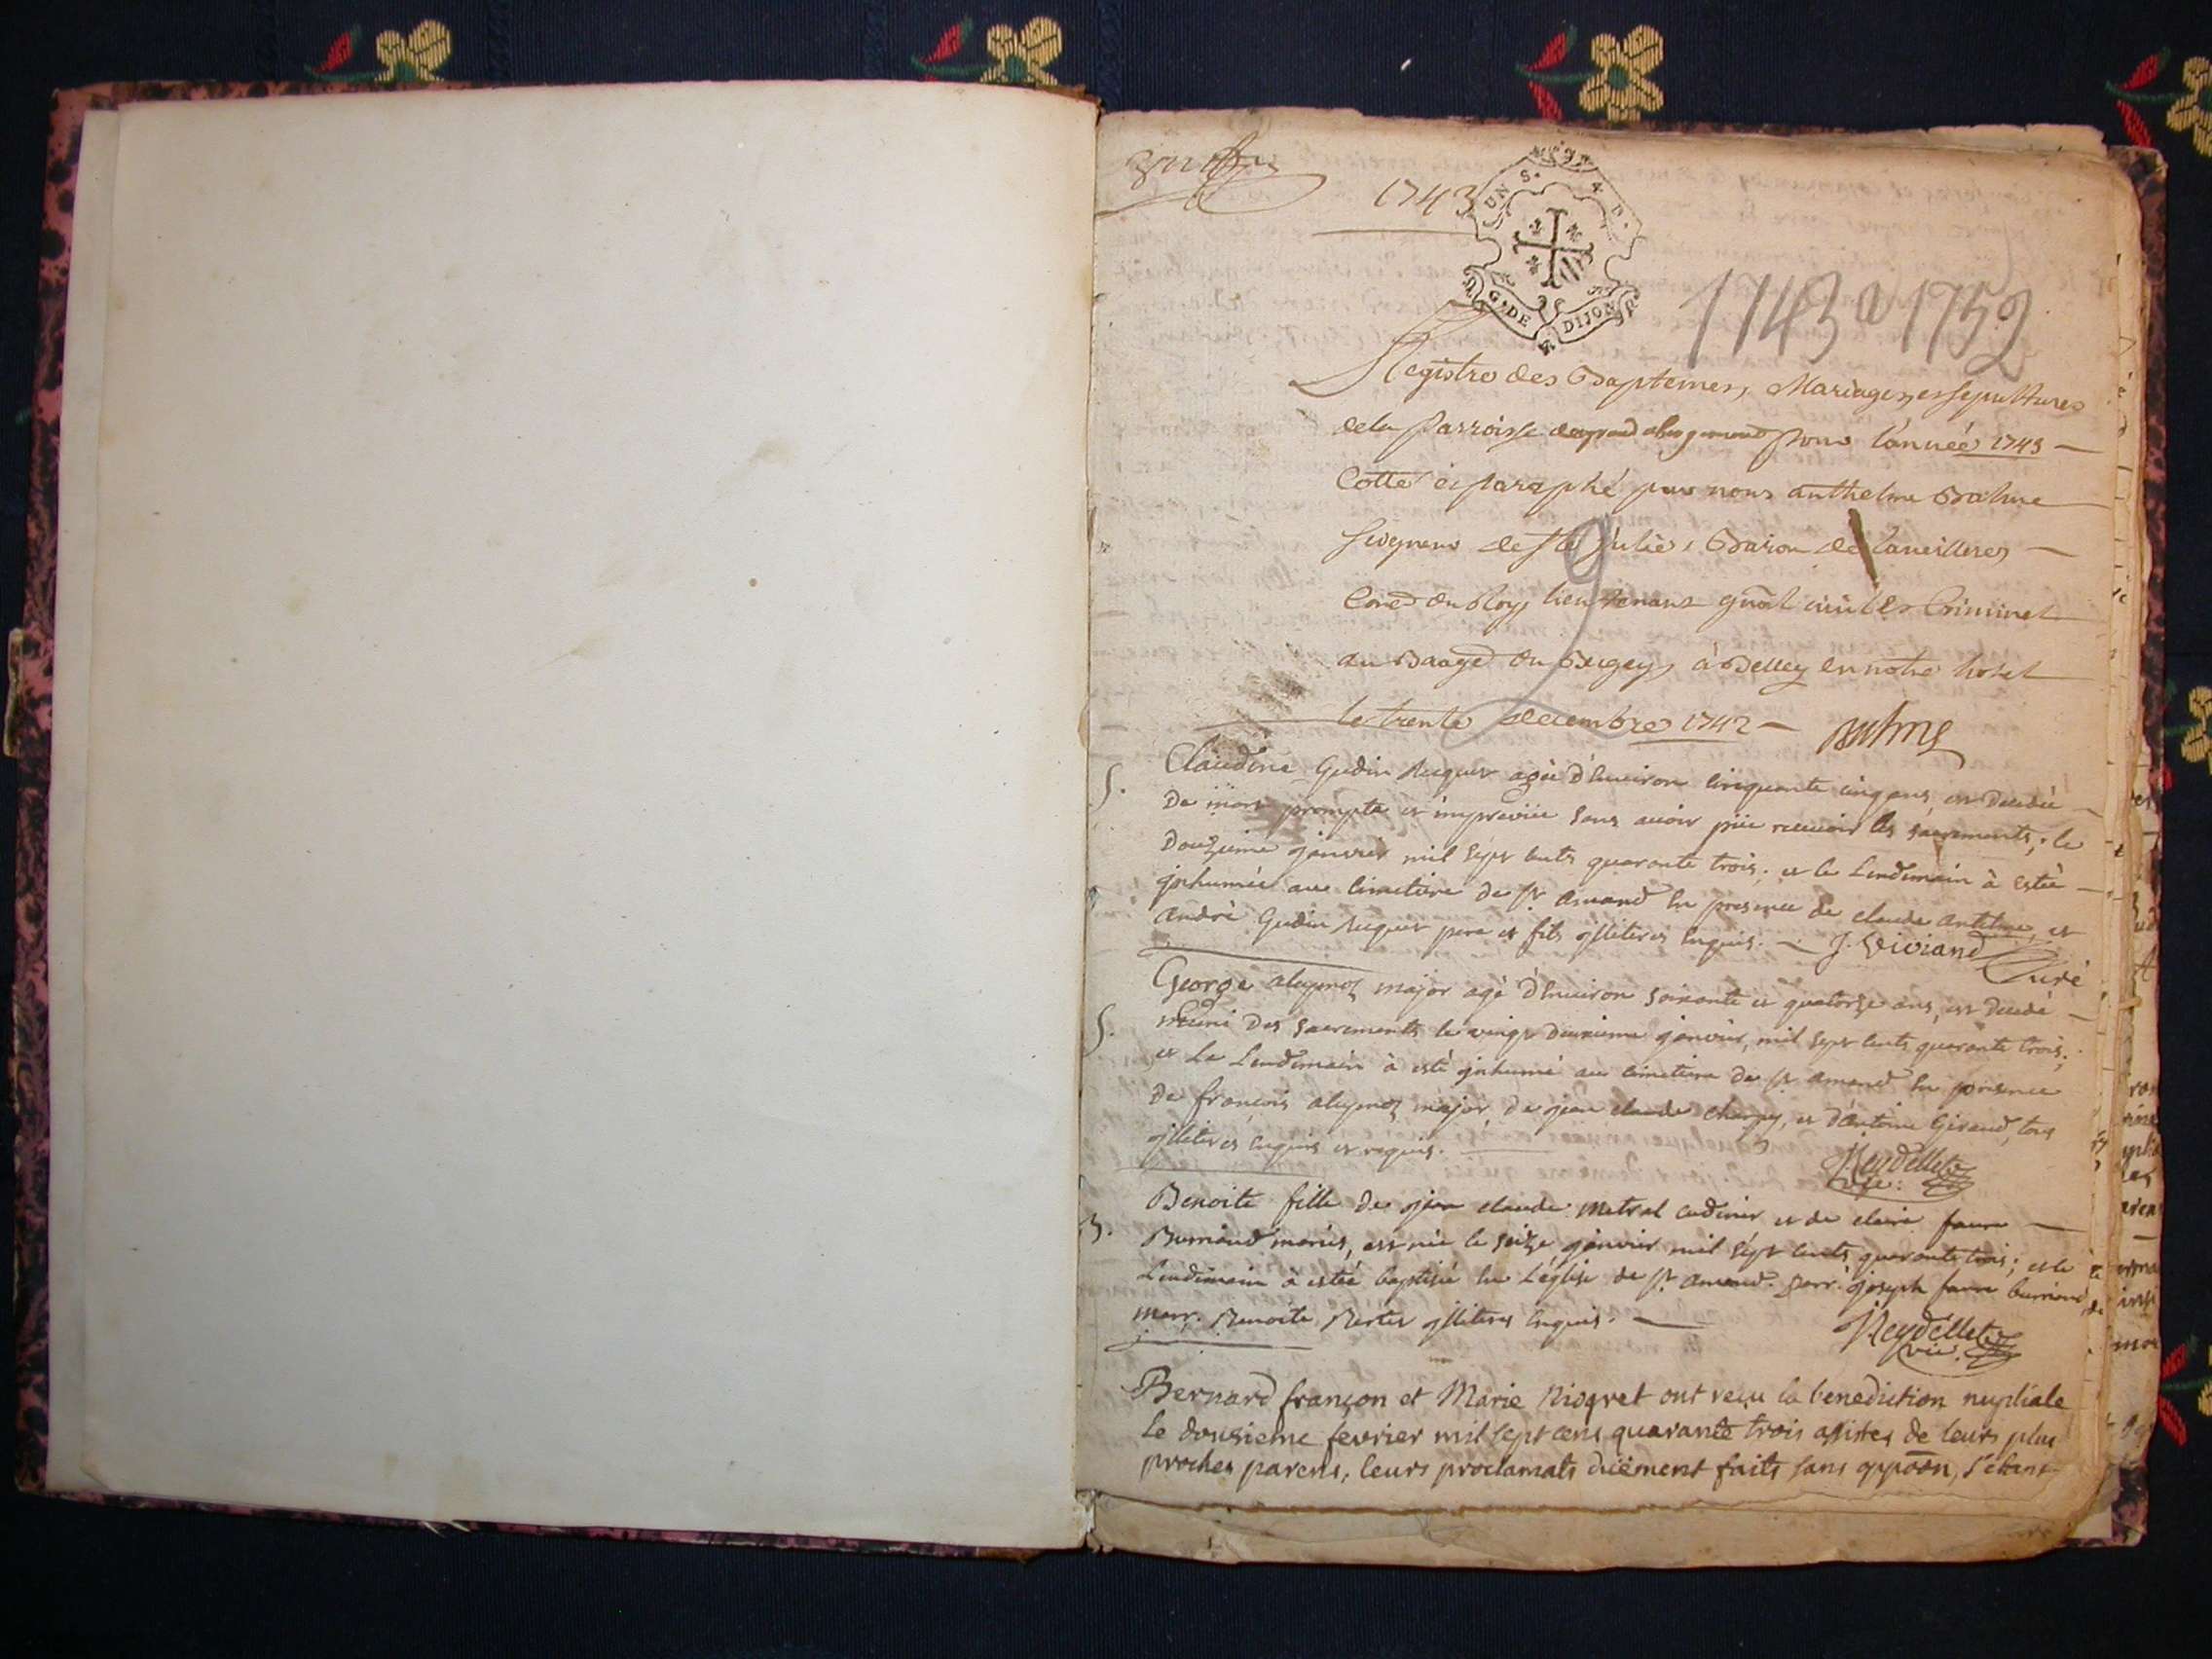 1743
UN S. 4 D.
G. DE DIJON
1743 a 1752
Registre des Baptemes, Mariages, et sepultures
de la Parroisse du grand abergement pour l'année 1743
Cotté et paraphé par nous anthelme Balme
seigneur de Ste Julie, Baron de
Coner du Roy, lieutenant gnãl civil et Criminel
au Baage du Bugey, à Belley en notre hotel
le trente decembre 1742
Balme
S.
Claudine Gudin agée d'Environ cinquante cinq ans, est decedée
De mort prompte et impreviüe sans avoir püe recevoir les sacrements, le
Douzieme janvier mil sept cents quarante trois; et le Lendemain à estée
jnhumée au cimetiere de St Amand En presence de claude antelme, et
andré Gudin pere et fils jlliteres Enquis. J. Vivian
Curé
S.
George major agé d'Environ soixante et quatorze ans, est decedé
Muni Des sacrements le vingt deuxieme janvier, mil sept cents quarante trois;
et Le Lendemain à esté jnhumé au cimetiere de St Amand En presence
De françois major, de jean claude et d'Antoine Giraud, tous
jlliteres Enquis et requis.
Reydellet
vic.
B.
Benoite fille De jean claude Metral et de claire faure
Burniaud mariés, est née le seize janvier mil sept cents quarante trois; et le
Lendemain à estée baptisée En L'église de St Amand. parr. joseph faure burniaud, de
marr. Benoite jlliteres Enquis.
Reydellet
vic.
Bernard françon et Marie Nioqret ont reçu la benediction nuptiale
Le dousieme fevrier mil sept cens quarante trois assistes de leurs plus
proches parens, leurs proclamats düement faits sans oppõõn, s'etant